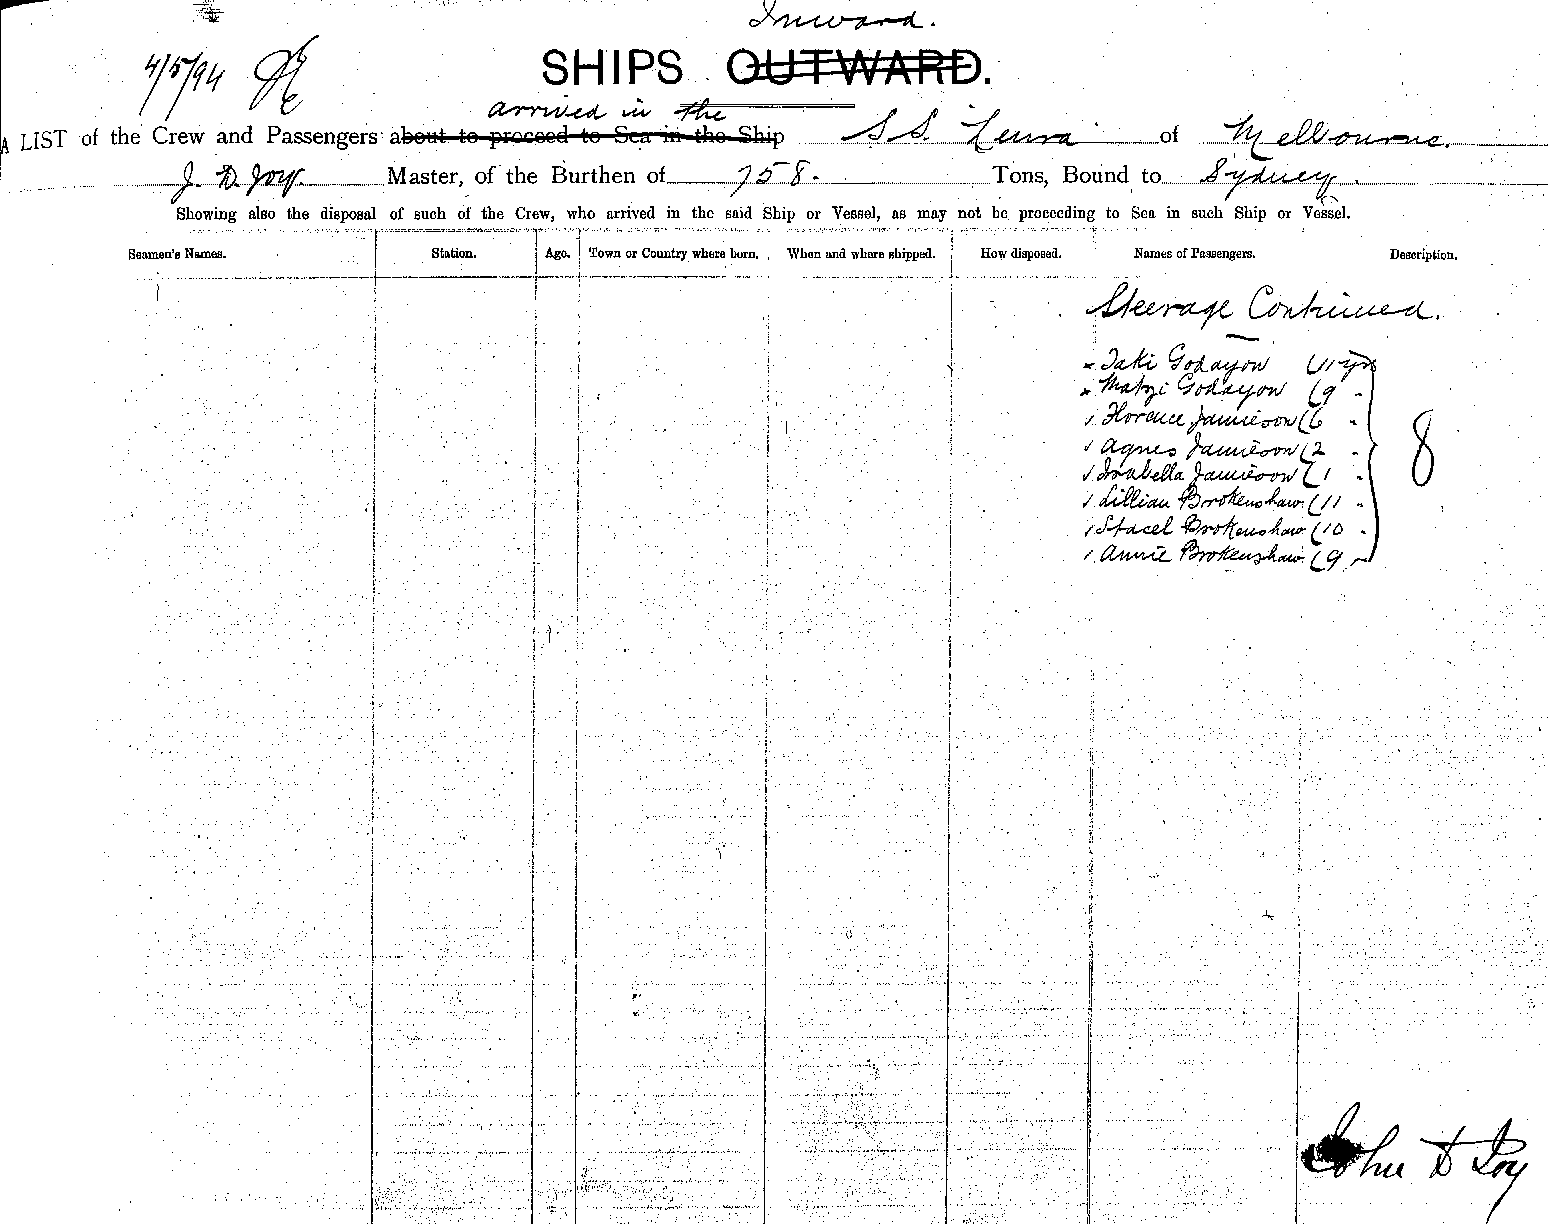 Inward.
4/5/94
SHIPS OUTWARD.
arrived in the
A LIST of the Crew and Passengers about to proceed to Sea in the Ship S.S. "Leura" of Melbourne.
J. D. Joy. Master, of the Burthen of 758. Tons, Bound to Sydney.
Showing also the disposal of such of the Crew, who arrived in the said Ship or Vessel, as may not be proceeding to Sea in such Ship or Vessel.
Seamen's Names. Station. Age. Town or Country where born. When and where shipped. How disposed. Names of Passengers. Description.
Steerage Continued.
Taki Godayon (11 yrs
Matzi Godayon (9 "
Florence Jamieson (6 "
Agnes Jamieson (2 "
Isabella Jamieson (1 "
Lillian Brokenshaw (11 "
Stacel Brokenshaw (10 "
Annie Brokenshaw (9 "
8
John D Joy